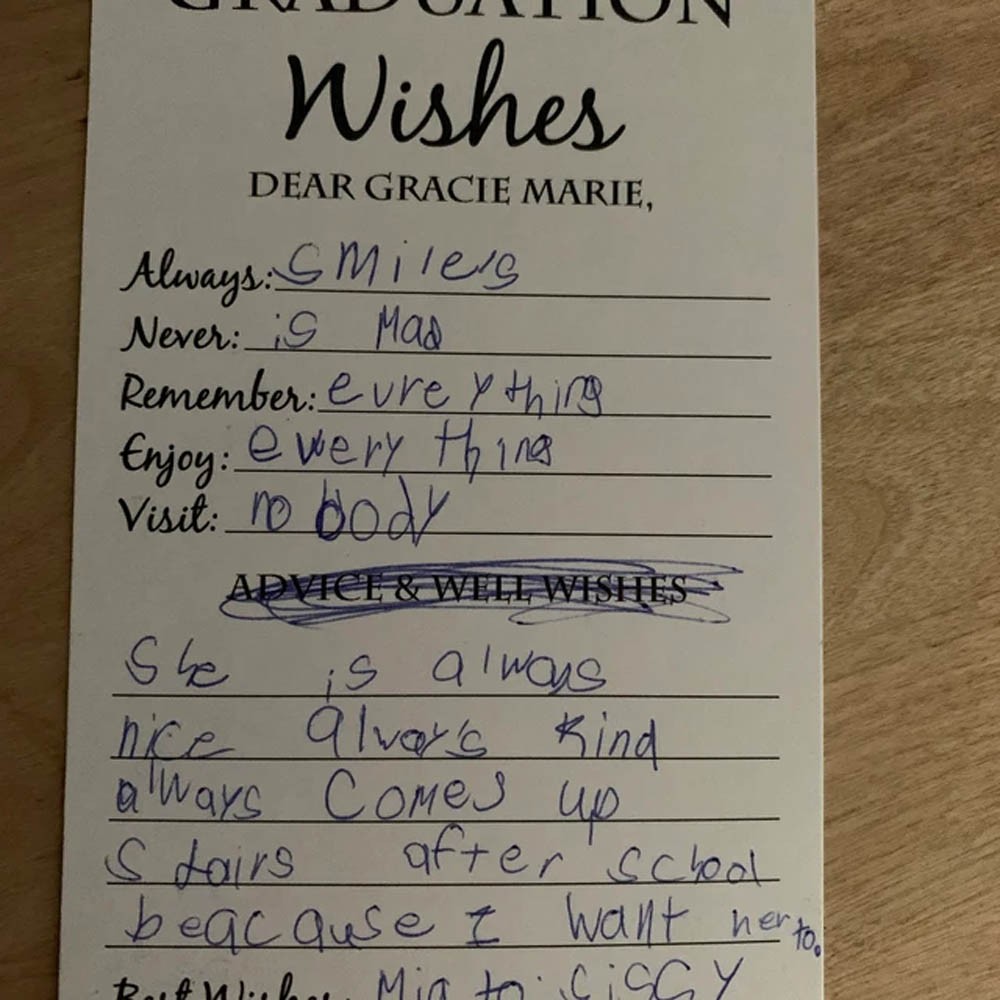 GRADUATION
Wishes
DEAR GRACIE MARIE,
Always: smiles
Never: is Mad
Remember: eurey thing
Enjoy: every thing
Visit: no body
ADVICE & WELL WISHES
She is always
nice always kind
always Comes up
stairs after school
beacause I want her to.
Best Wishes, Mia to: SiSSY